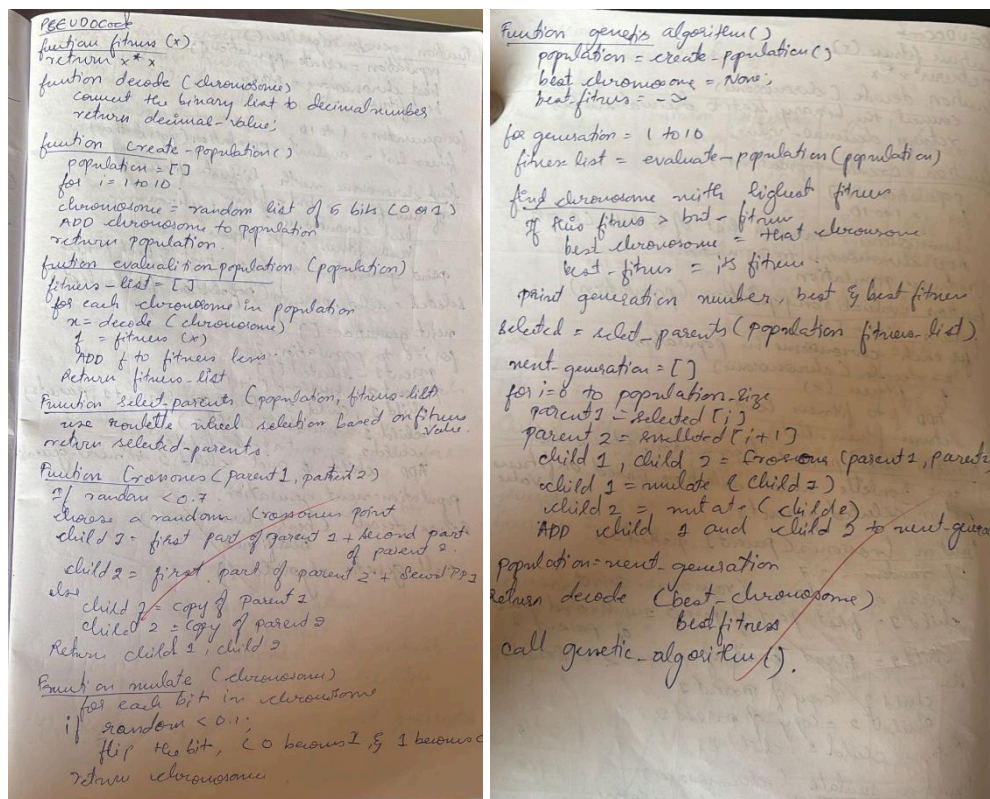 PSEUDOCode
funtion fitness (x)
return x * x
funtion decode (chromosome)
convert the binary list to decimal number
return decimal-value;
function create-population()
population = [ ]
for i = 1 to 10
chromosome = random list of 5 bits (0 or 1)
ADD chromosome to population
return population.
function evaluation-population (population)
fitness-list = [ ]
for each chromosome in population
x = decode (chromosome)
f = fitness (x)
ADD f to fitness
Return fitness-list
Function select-parents (population, fitness-list)
use roulette wheel selection based on fitness
value.
return selected-parents.
Function Crossover (parent 1, parent 2)
If random < 0.7
choose a random crossover point
child 1 = first part of parent 1 + second part
of parent 2.
child 2 = first part of parent 2 + Second PP1
else
child 1 = copy of parent 1
child 2 = copy of parent 2
Return child 1, child 2
Function mutate (chromosome)
for each bit in chromosome
if random < 0.1:
flip the bit, (0 becomes 1, & 1 becomes 0
return chromosome
Function genetic algorithm()
population = create-population()
best chromosome = None;
best-fitness = -∞
for generation = 1 to 10
fitness list = evaluate-population (population)
find chromosome with highest fitness
If this fitness > best-fitness
best chromosome = that chromosome
best-fitness = its fitness.
print generation number, best & best fitness
Selected = select_parents (population fitness-list)
next-generation = [ ]
for i=0 to population-size
parent 1 = selected [i]
parent 2 = selected [i+1]
child 1, child 2 = Crossover (parent 1, parent 2
child 1 = mutate (child 1)
child 2 = mutate (child 2)
ADD child 1 and child 2 to next-genera
population = next-generation
return decode (best-chromosome)
best fitness
call genetic-algorithm().